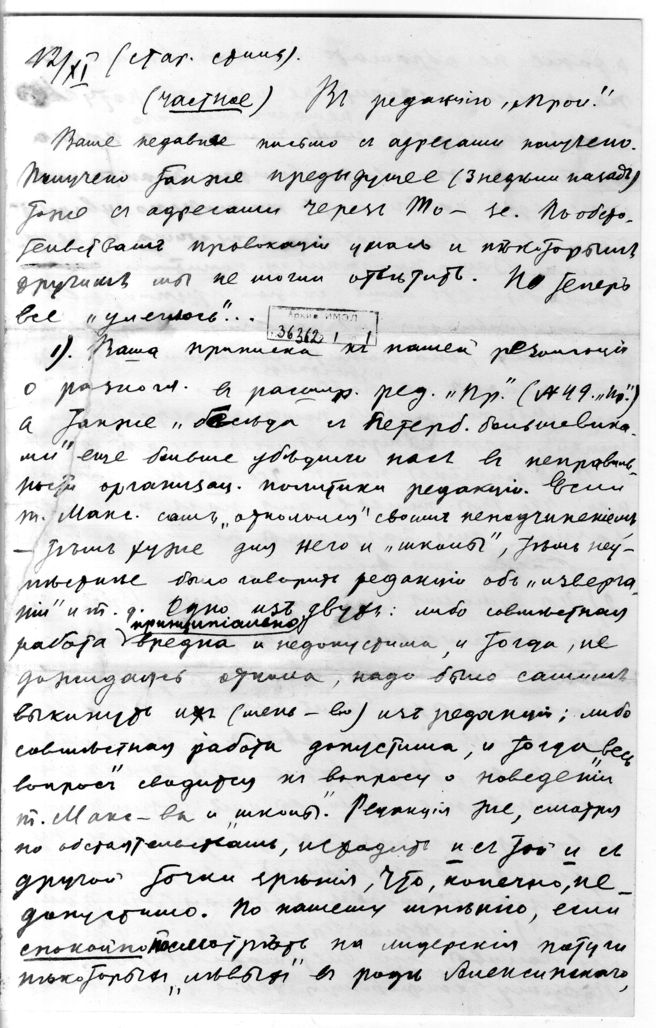 12/XI (стар. стиль).
(частное) Въ редакцію „Прол."
Ваше недавнее письмо съ адресами получено.
Получено также предыдущее (3 недѣли назадъ)
тоже съ адресами черезъ То–je. По обсто-
ятельствамъ провокаціи у насъ и нѣкоторымъ
другимъ мы не могли отвѣтить. Но теперь
все „умеилось"...
Архив ИМЭЛ
36362 1 1
1). Ваша приписка къ нашей резолюціи
о разногл. въ расшир. ред. „Пр." (№ 49. „Пр.")
а также „бесѣда съ петерб. большевика-
ми" еще больше убѣдили насъ въ неправиль-
ности организац. политики редакціи. Если
т. Макс. самъ „откололся" своимъ неподчиненіемъ
– тѣмъ хуже для него и „школы", тѣмъ неу-
мѣстнѣе было говорить редакціи объ „изверже-
ніи" и т. д. Одно изъ двухъ: либо совмѣстная
работа принципіально вредна и недопустима, и тогда, не
дожидаясь откола, надо было самимъ
выкинуть ихъ (мень–во) изъ редакціи; либо
совмѣстная работа допустима, и тогда весь
вопросъ сводится къ вопросу о „поведеніи
т. Макс–ва и „школы". Редакція же, смотря
по обстоятельствамъ, исходитъ и съ той и съ
другой точки зрѣнія, что, конечно, не-
допустимо. По нашему мнѣнію, если
спокойно посмотрѣть на лидерскія потуги
нѣкоторыхъ „лѣвыхъ" въ родѣ Алексинскаго,